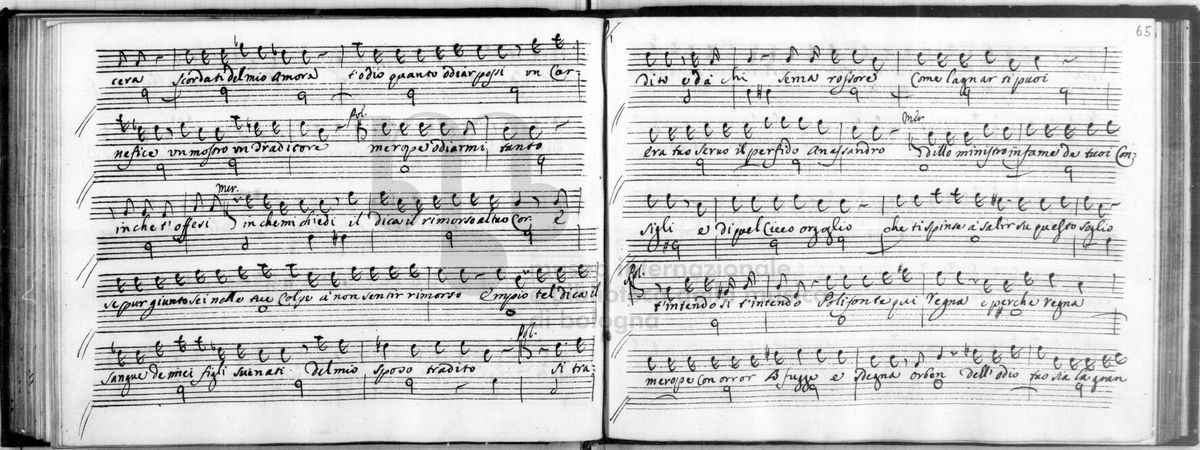 cera scordati del mio Amora t'odio quanto odiar possi un Car-
nefice un mostro un Tradicore
Pol.
merope odiarmi tanto
in che t'offesi
Mer.
in che mi chiedi il dica il rimorso al tuo Cor. e
se pur giunto sei nelle tue Colpe a non sentir rimorso Empio tel dica il
sangue de miei figli suenati del mio sposo tradito
Pol.
si tra-
65
dito e da chi senza rossore Come lagnar ti puoi
era tuo seruo il perfido Anassandro
Mer.
dillo ministro infame de tuoi Con-
sigli e di quel Cieco orgoglio che ti spinse a salir su questo soglio
Pol.
t'intendo si t'intendo Polifonte qui Regna e perche Regna
merope con orror Lo fugge e sdegna orben dell'odio tuo sia la gran
museo internazionale
di bologna